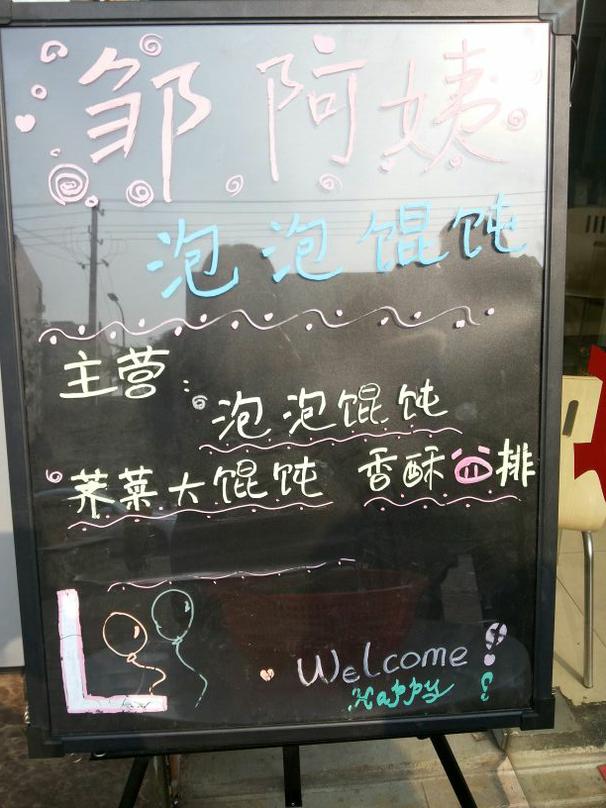 邹阿姨
泡泡馄饨
主营:
泡泡馄饨
荠菜大馄饨 香酥排
Welcome!
Happy!